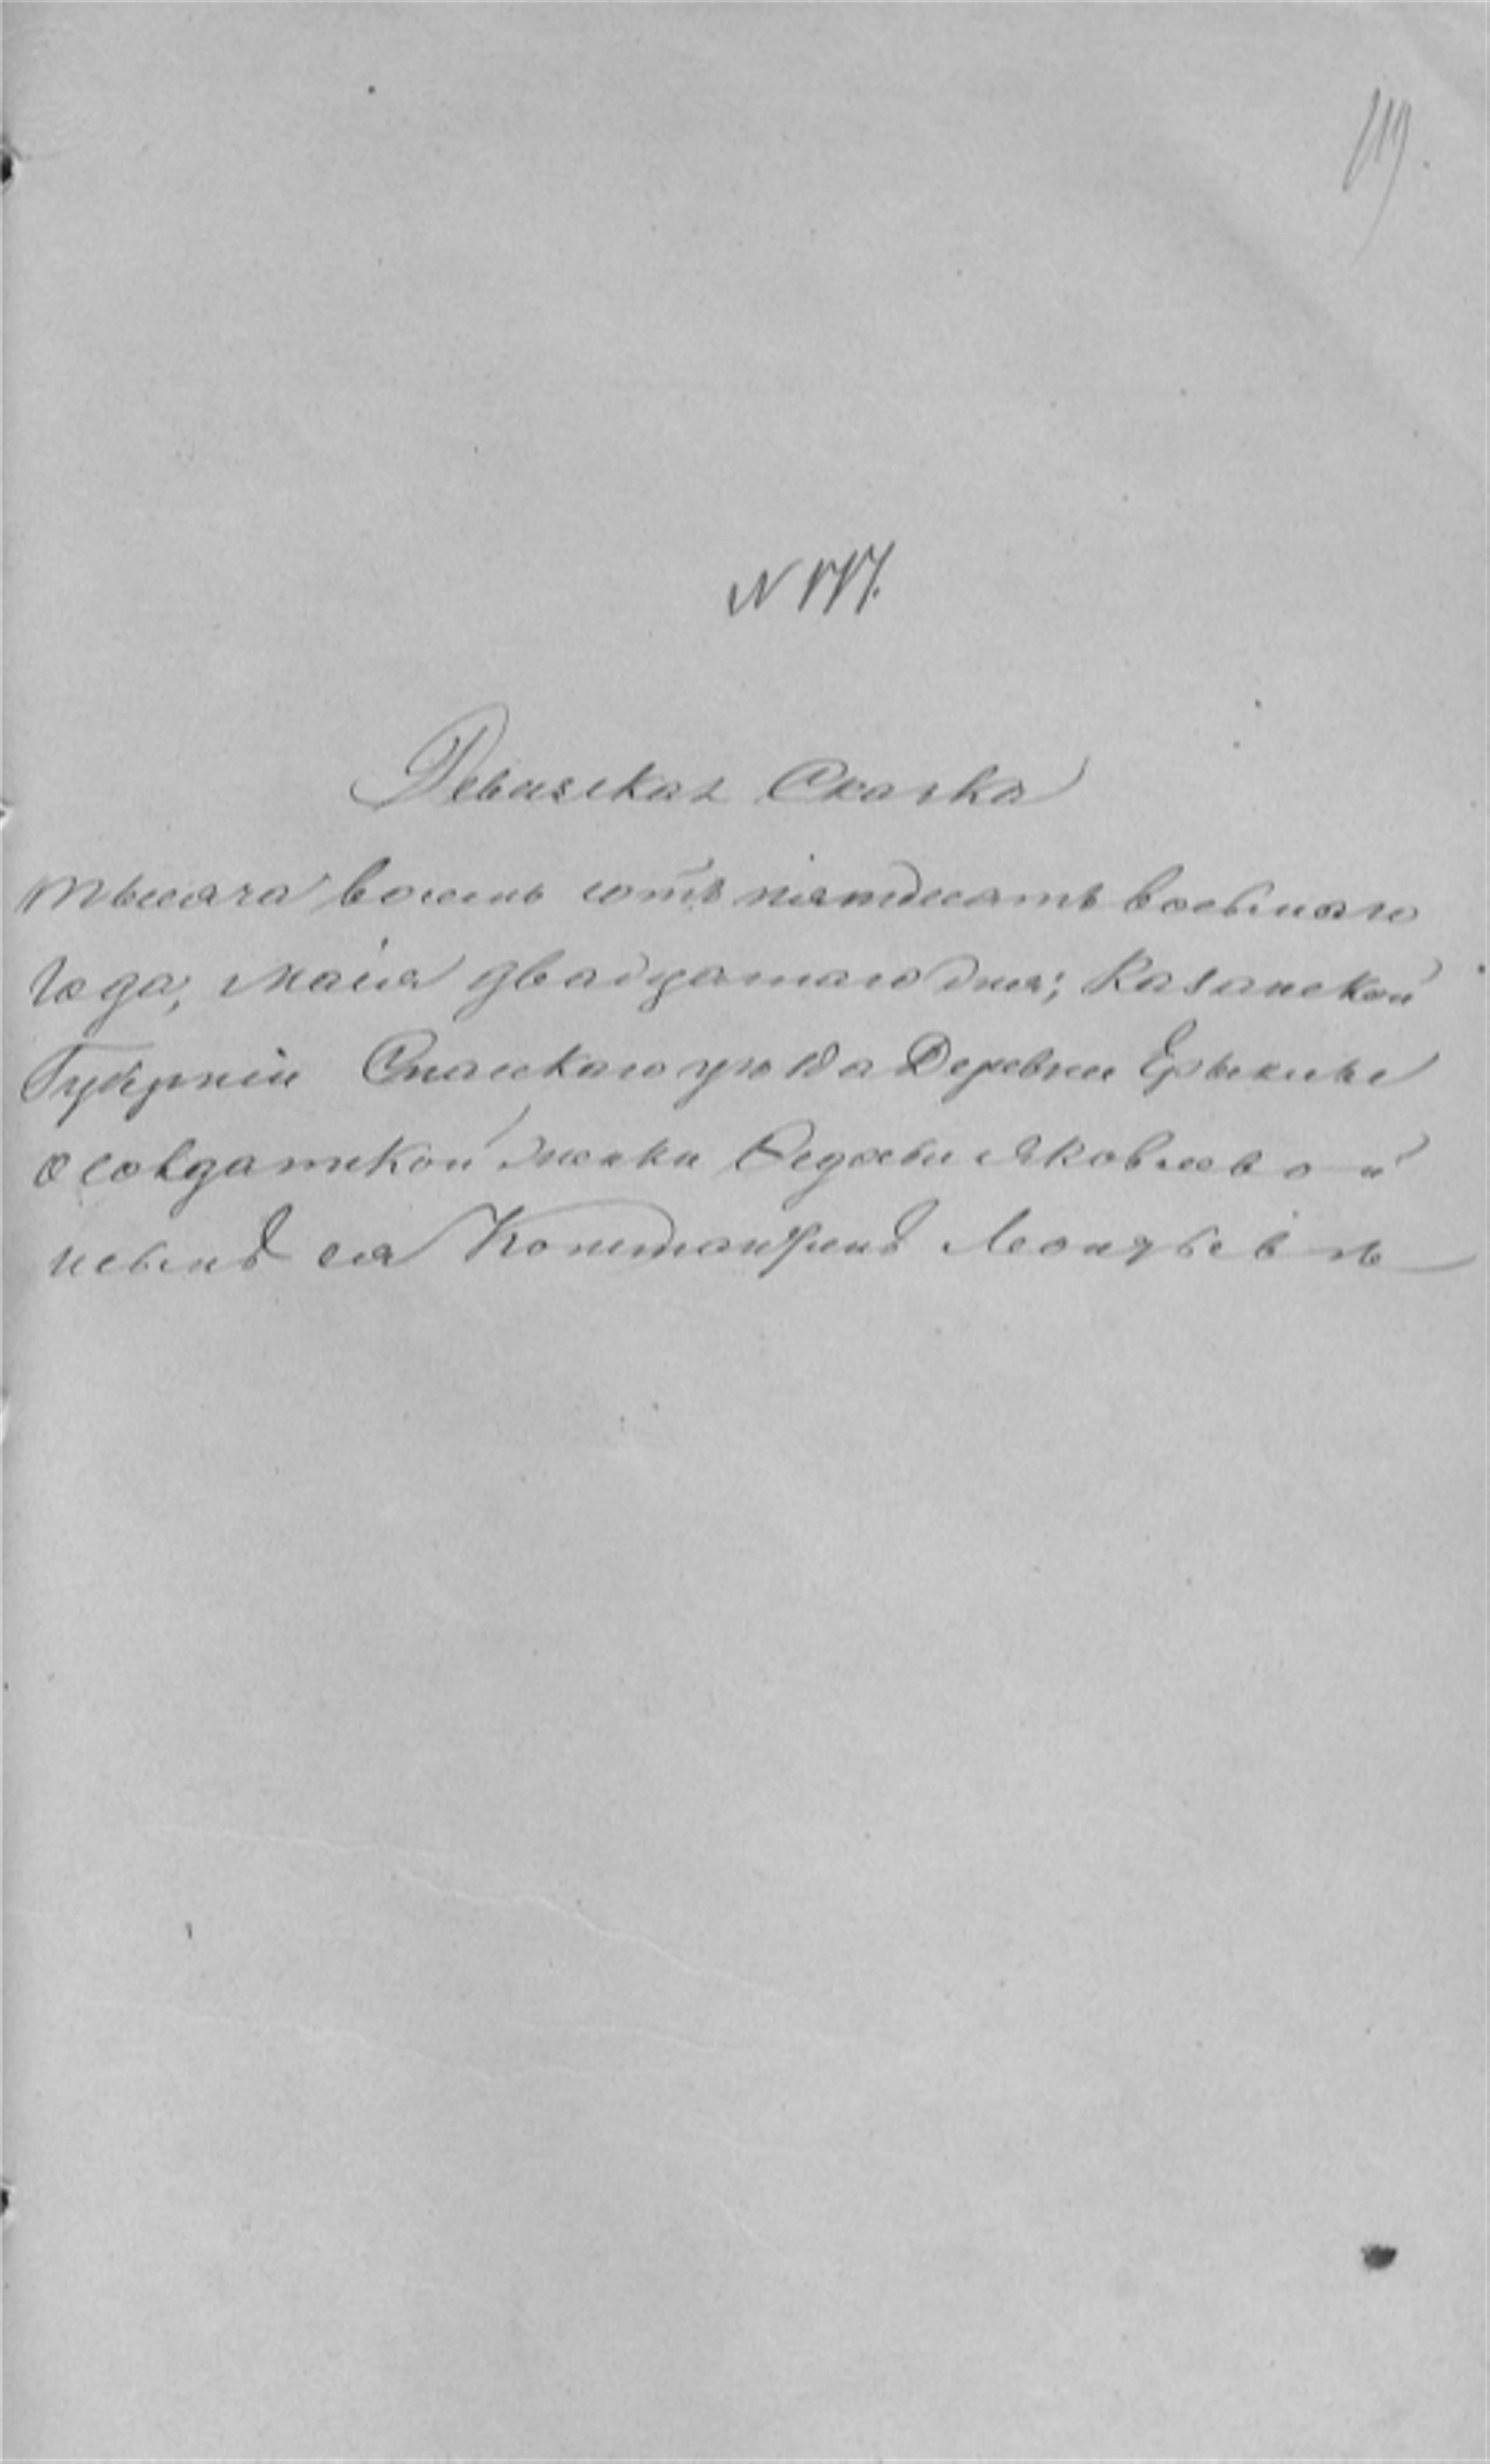 119.
N 177.
Ревизская Сказка
тысяча восемь сотъ пятдесятъ восьмаго
года, маія двадцатаго дня; Казанской
Губерніи Спаскаго уѣзда Деревни Ерыклы
о солдатской женки Федосьи Яковлевой
исынѣ ея Константинѣ Леонтьевѣ